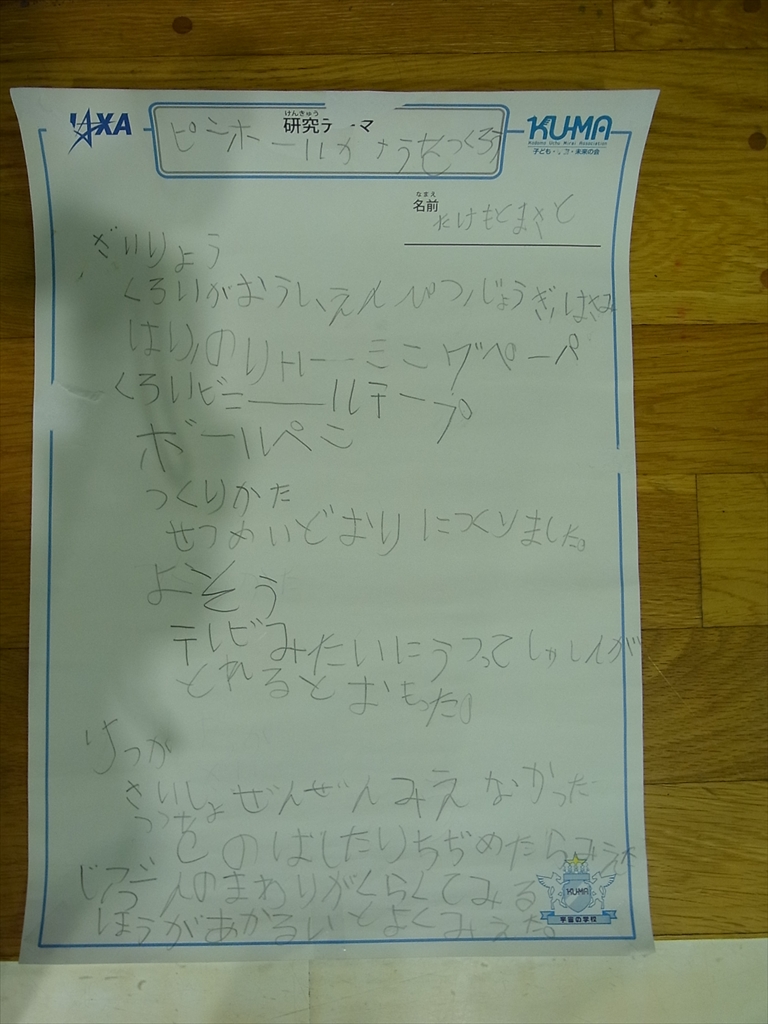 JAXA
けんきゅう
研究テーマ
ピンホールカメラをつくろう
KU-MA
Kodomo Uchu Mirai Association
子ども・宇宙・未来の会
なまえ
名前
たけもとまさと
ざいりょう
くろいがようし、えんぴつ、じょうぎ、はさみ
はり、のり、トレーシングペーパ
くろいビニールテープ
ボールペン
つくりかた
せつめいどおりにつくりました。
よそう
テレビみたいにうつってしゃしんが
とれるとおもった。
けっか
さいしょぜんぜんみえなかった
つつ
をのばしたりちぢめたらみえた
じぶんのまわりがくらくてみる
ほうがあかるいとよくみえた。
KU-MA
宇宙の学校